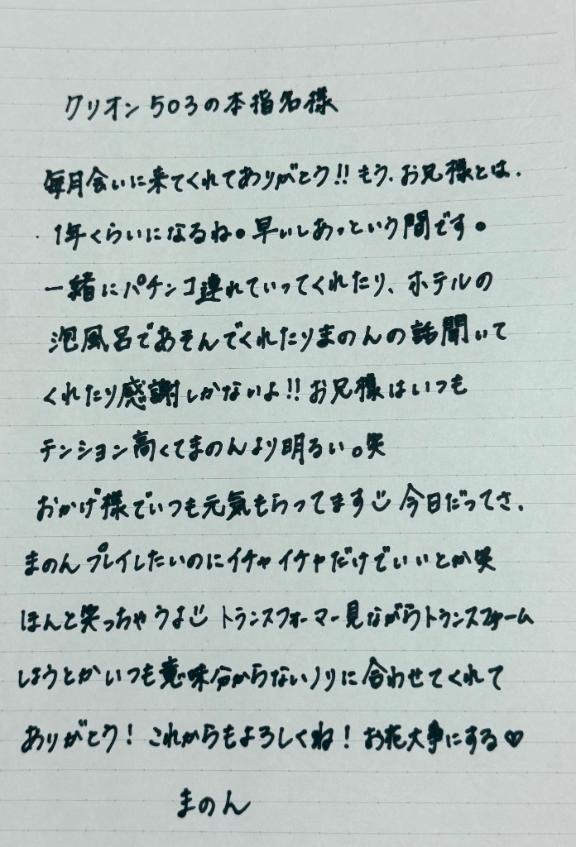 クリオン503の本指名様
毎月会いに来てくれてありがとう!!もう、お兄様とは、
1年くらいになるね。早いしあっという間です。
一緒にパチンコ連れていってくれたり、ホテルの
泡風呂であそんでくれたりまのんの話聞いて
くれたり感謝しかないよ!!お兄様はいつも
テンション高くてまのんより明るい。笑
おかげ様でいつも元気もらってます☺今日だってさ、
まのんプレイしたいのにイチャイチャだけでいいとか笑
ほんと笑っちゃうよ☺トランスフォーマー見ながらトランスフォーム
しようとかいつも意味分からないノリに合わせてくれて
ありがとう!これからもよろしくね!お花大事にする♡
まのん